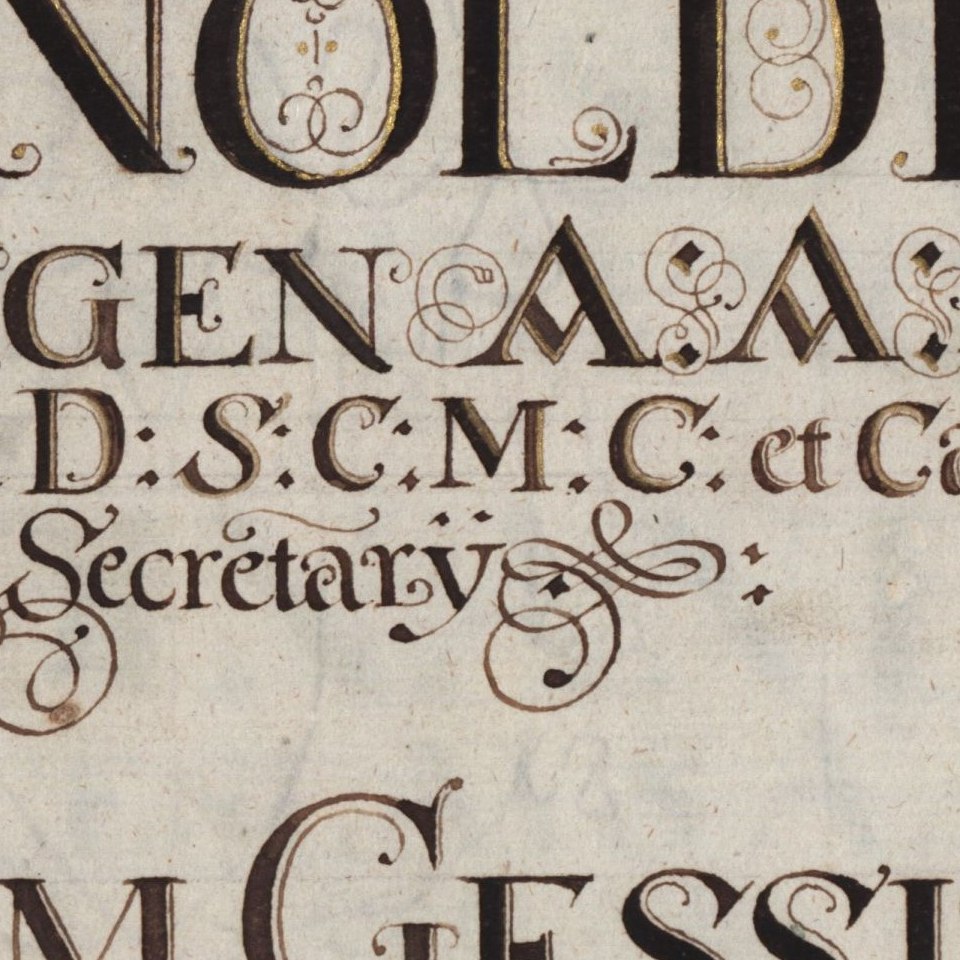 NOLDI
GEN A:A:
D:S:C:M:C: et Ca
Secretarÿ :
M GESSI